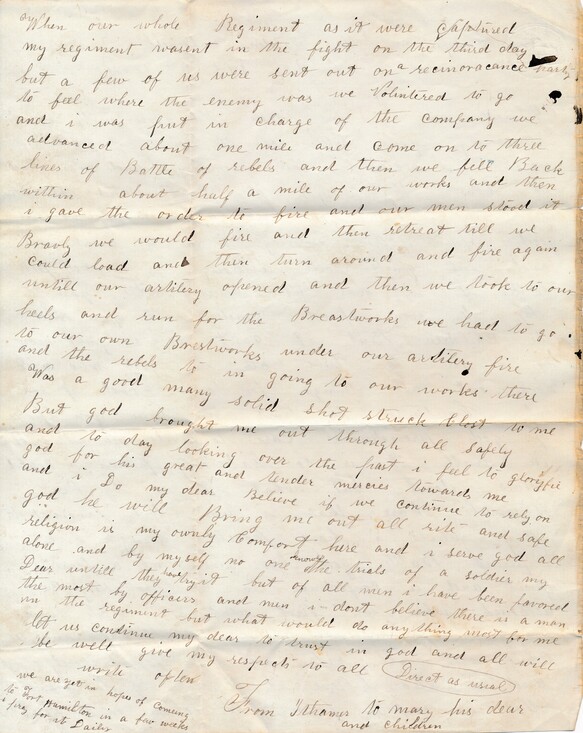 When our whole Regiment as it were Captured
my regiment wasent in the fight on the third day
but a few of us were sent out on a recinoracance party
to feel where the enemy was we Volintered to go
and i was put in charge of the company we
advanced about one mile and come on to three
lines of Battle of rebels and then we fell Back
within about half a mile of our works and then
i gave the order to fire and our men stood it
Bravly we would fire and then retreat till we
could load and then turn around and fire again
untill our artilery opened and then we took to our
heels and run for the Breastworks we had to go
to our own Brestworks under our artilery fire
and the rebels to in going to our works there
Was a good many solid shot struck Clost to me
But god brought me out through all safely
and to day looking over the past i feel to glorifie
god for his great and tender mercies towards me
and i Do my dear Believe if we continue to rely on
god he will Bring me out all rite and safe
religion is my ownly Comfort here and i serve god all
alone and by myself no one knows the trials of a soldier my
Dear untile they have try it but of all men i have been favored
the most by officers and men i dont believe there is a man
in the regiment but what would do anything most for me
let us continue my dear to trust in god and all will
be well give my respects to all Direct as usual
write often
From Ithamer to mary his dear
and children
we are yet in hopes of Comeing
to Fort Hamilton in a few weeks
i pray for it Daily